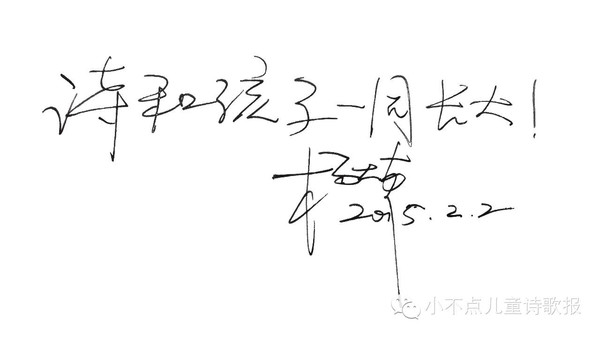 诗和孩子一同长大！
2015.2.2
小不点儿童诗歌报